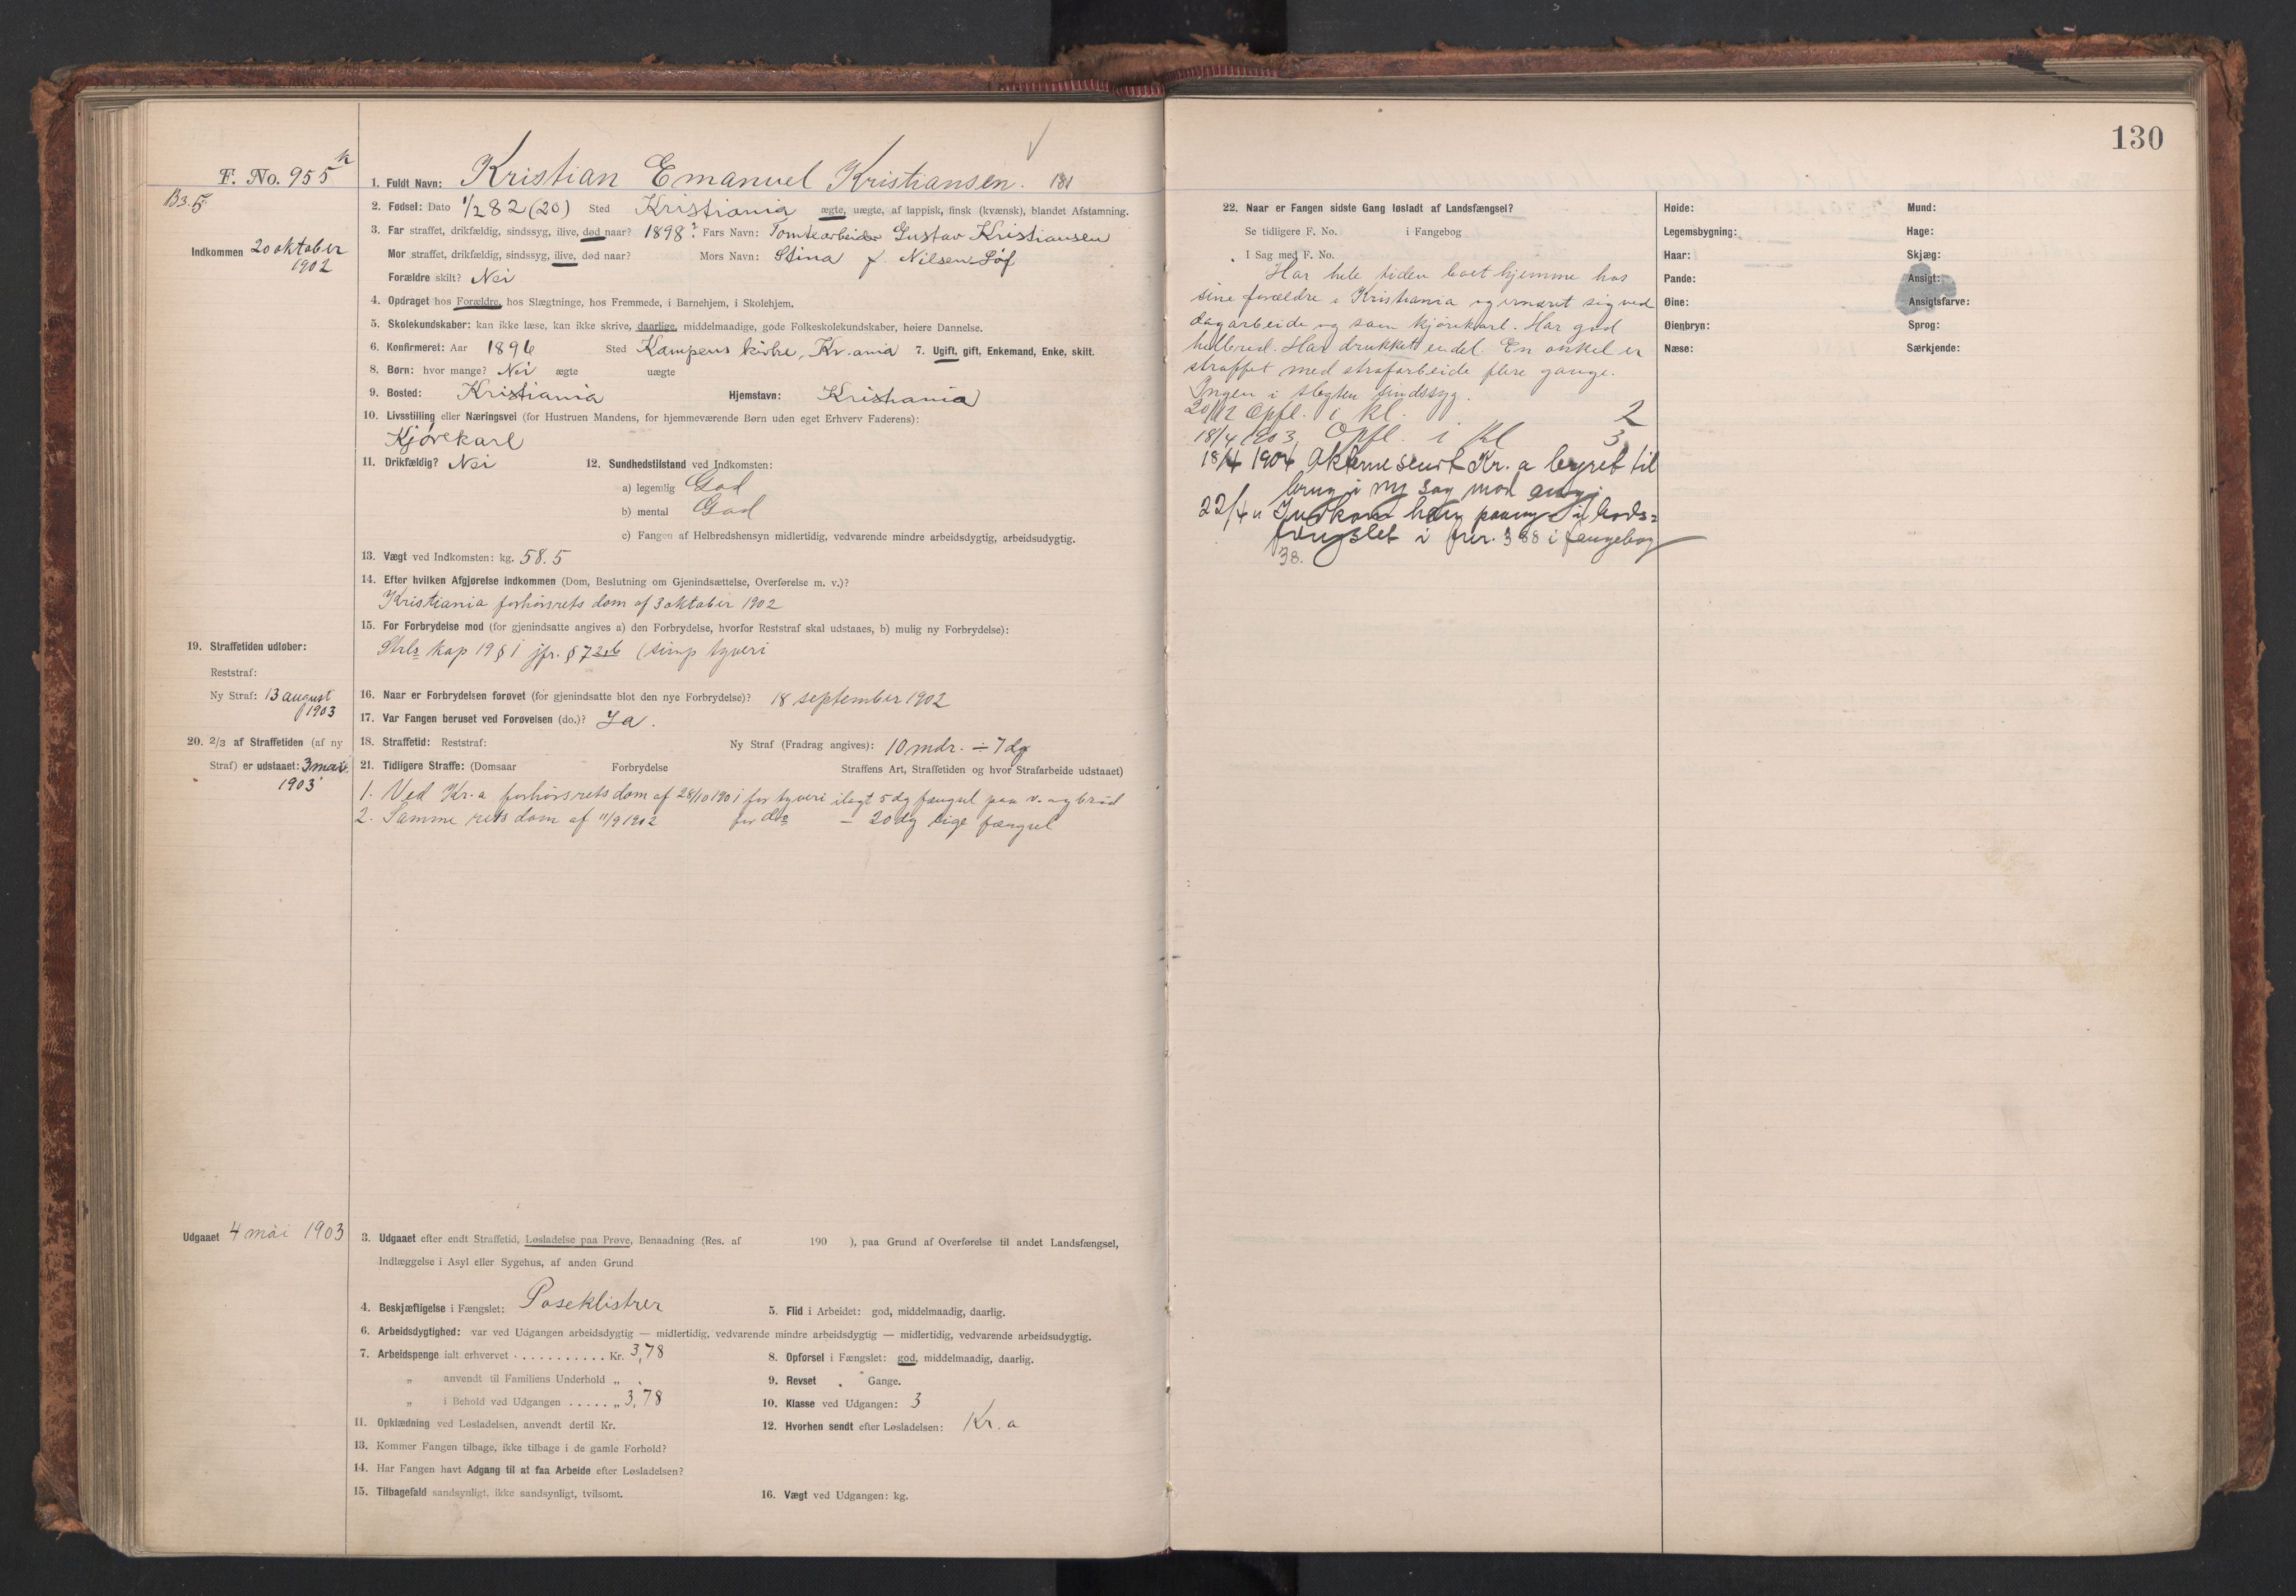 F. No. 955
B3.5
Indkommen 20 oktober
1902
1. Fuldt Navn: Kristian Emanuel Kristiansen. 181
2. Fødsel: Dato 1/2 82 (20) Sted Kristiania ægte, uægte, af lappisk, finsk (kvænsk), blandet Afstamning.
3. Far straffet, drikfældig, sindssyg, ilive, død naar? 1898? Fars Navn: Tomtearbeider Gustav Kristiansen
Mor straffet, drikfældig, sindssyg, ilive, død naar? Mors Navn: Stina f. Nilsen Löf
Forældre skilt? Nei
4. Opdraget hos Forældre, hos Slægtninge, hos Fremmede, i Barnehjem, i Skolehjem.
5. Skolekundskaber: kan ikke læse, kan ikke skrive, daarlige, middelmaadige, gode Folkeskolekundskaber, høiere Dannelse.
6. Konfirmeret: Aar 1896 Sted Kampens kirke, Kr.ania 7. Ugift, gift, Enkemand, Enke, skilt.
8. Børn: hvor mange? Nei ægte uægte
9. Bosted: Kristiania Hjemstavn: Kristiania
10. Livsstilling eller Næringsvei (for Hustruen Mandens, for hjemmeværende Børn uden eget Erhverv Faderens):
Kjørekarl
11. Drikfældig? Nei 12. Sundhedstilstand ved Indkomsten:
a) legemlig God
b) mental God
c) Fangen af Helbredshensyn midlertidig, vedvarende mindre arbeidsdygtig, arbeidsudygtig.
13. Vægt ved Indkomsten: kg. 58.5
14. Efter hvilken Afgjørelse indkommen (Dom, Beslutning om Gjenindsættelse, Overførelse m. v.)?
Kristiania forhørsrets dom af 3 oktober 1902
15. For Forbrydelse mod (for gjenindsatte angives a) den Forbrydelse, hvorfor Reststraf skal udstaaes, b) mulig ny Forbrydelse):
Strls kap 19 § 1 jfr. § 7 2,b (simp tyveri
19. Straffetiden udløber:
Reststraf:
Ny Straf: 13 august
1903
16. Naar er Forbrydelsen forøvet (for gjenindsatte blot den nye Forbrydelse)? 18 september 1902
17. Var Fangen beruset ved Forøvelsen (do.)? Ja.
20. 2/3 af Straffetiden (af ny
Straf) er udstaaet: 3 mai
1903
18. Straffetid: Reststraf: Ny Straf (Fradrag angives): 10 mdr. ÷ 7 dg
21. Tidligere Straffe: (Domsaar Forbrydelse Straffens Art, Straffetiden og hvor Strafarbeide udstaaet)
1. Ved Kr.a forhørsrets dom af 28/10 1901 for tyveri ilagt 5 dg fængsel paa v. og brød
2. Samme rets dom af 11/9 1902 for do — 20 dg lige fængsel
Udgaaet 4 mai 1903
3. Udgaaet efter endt Straffetid, Løsladelse paa Prøve, Benaadning (Res. af 190 ), paa Grund af Overførelse til andet Landsfængsel,
Indlæggelse i Asyl eller Sygehus, af anden Grund
4. Beskjæftigelse i Fængslet: Poseklistrer 5. Flid i Arbeidet: god, middelmaadig, daarlig.
6. Arbeidsdygtighed: var ved Udgangen arbeidsdygtig — midlertidig, vedvarende mindre arbeidsdygtig — midlertidig, vedvarende arbeidsudygtig.
7. Arbeidspenge ialt erhvervet . . . . . . . . . . . Kr. 3,78 8. Opførsel i Fængslet: god, middelmaadig, daarlig.
„ anvendt til Familiens Underhold „ . 9. Revset . Gange.
„ i Behold ved Udgangen . . . . . „ 3,78 10. Klasse ved Udgangen: 3
11. Opklædning ved Løsladelsen, anvendt dertil Kr. 12. Hvorhen sendt efter Løsladelsen: Kr.a
13. Kommer Fangen tilbage, ikke tilbage i de gamle Forhold?
14. Har Fangen havt Adgang til at faa Arbeide efter Løsladelsen?
15. Tilbagefald sandsynligt, ikke sandsynligt, tvilsomt. 16. Vægt ved Udgangen: kg.
130
22. Naar er Fangen sidste Gang løsladt af Landsfængsel?
Se tidligere F. No. i Fangebog
I Sag med F. No.
Har hele tiden boet hjemme hos
sine forældre i Kristiania og ernæret sig ved
dagarbeide og som kjørekarl. Har god
helbred. Har drukket endel. En onkel er
straffet med strafarbeide flere gange.
Ingen i slegten sindssyg.
20/12 Opfl. i kl. 2
18/4 1903 Opfl. i Kl 3
18/4 1904 Akterne sendt Kr.a byret til
brug i ny sag mod
22/4 " Indkom han paany i bods=
fængslet i fnr. 388 i fangebog
38.
Høide:
Legemsbygning:
Haar:
Pande:
Øine:
Øienbryn:
Næse:
Mund:
Hage:
Skjæg:
Ansigt:
Ansigtsfarve:
Sprog:
Særkjende: